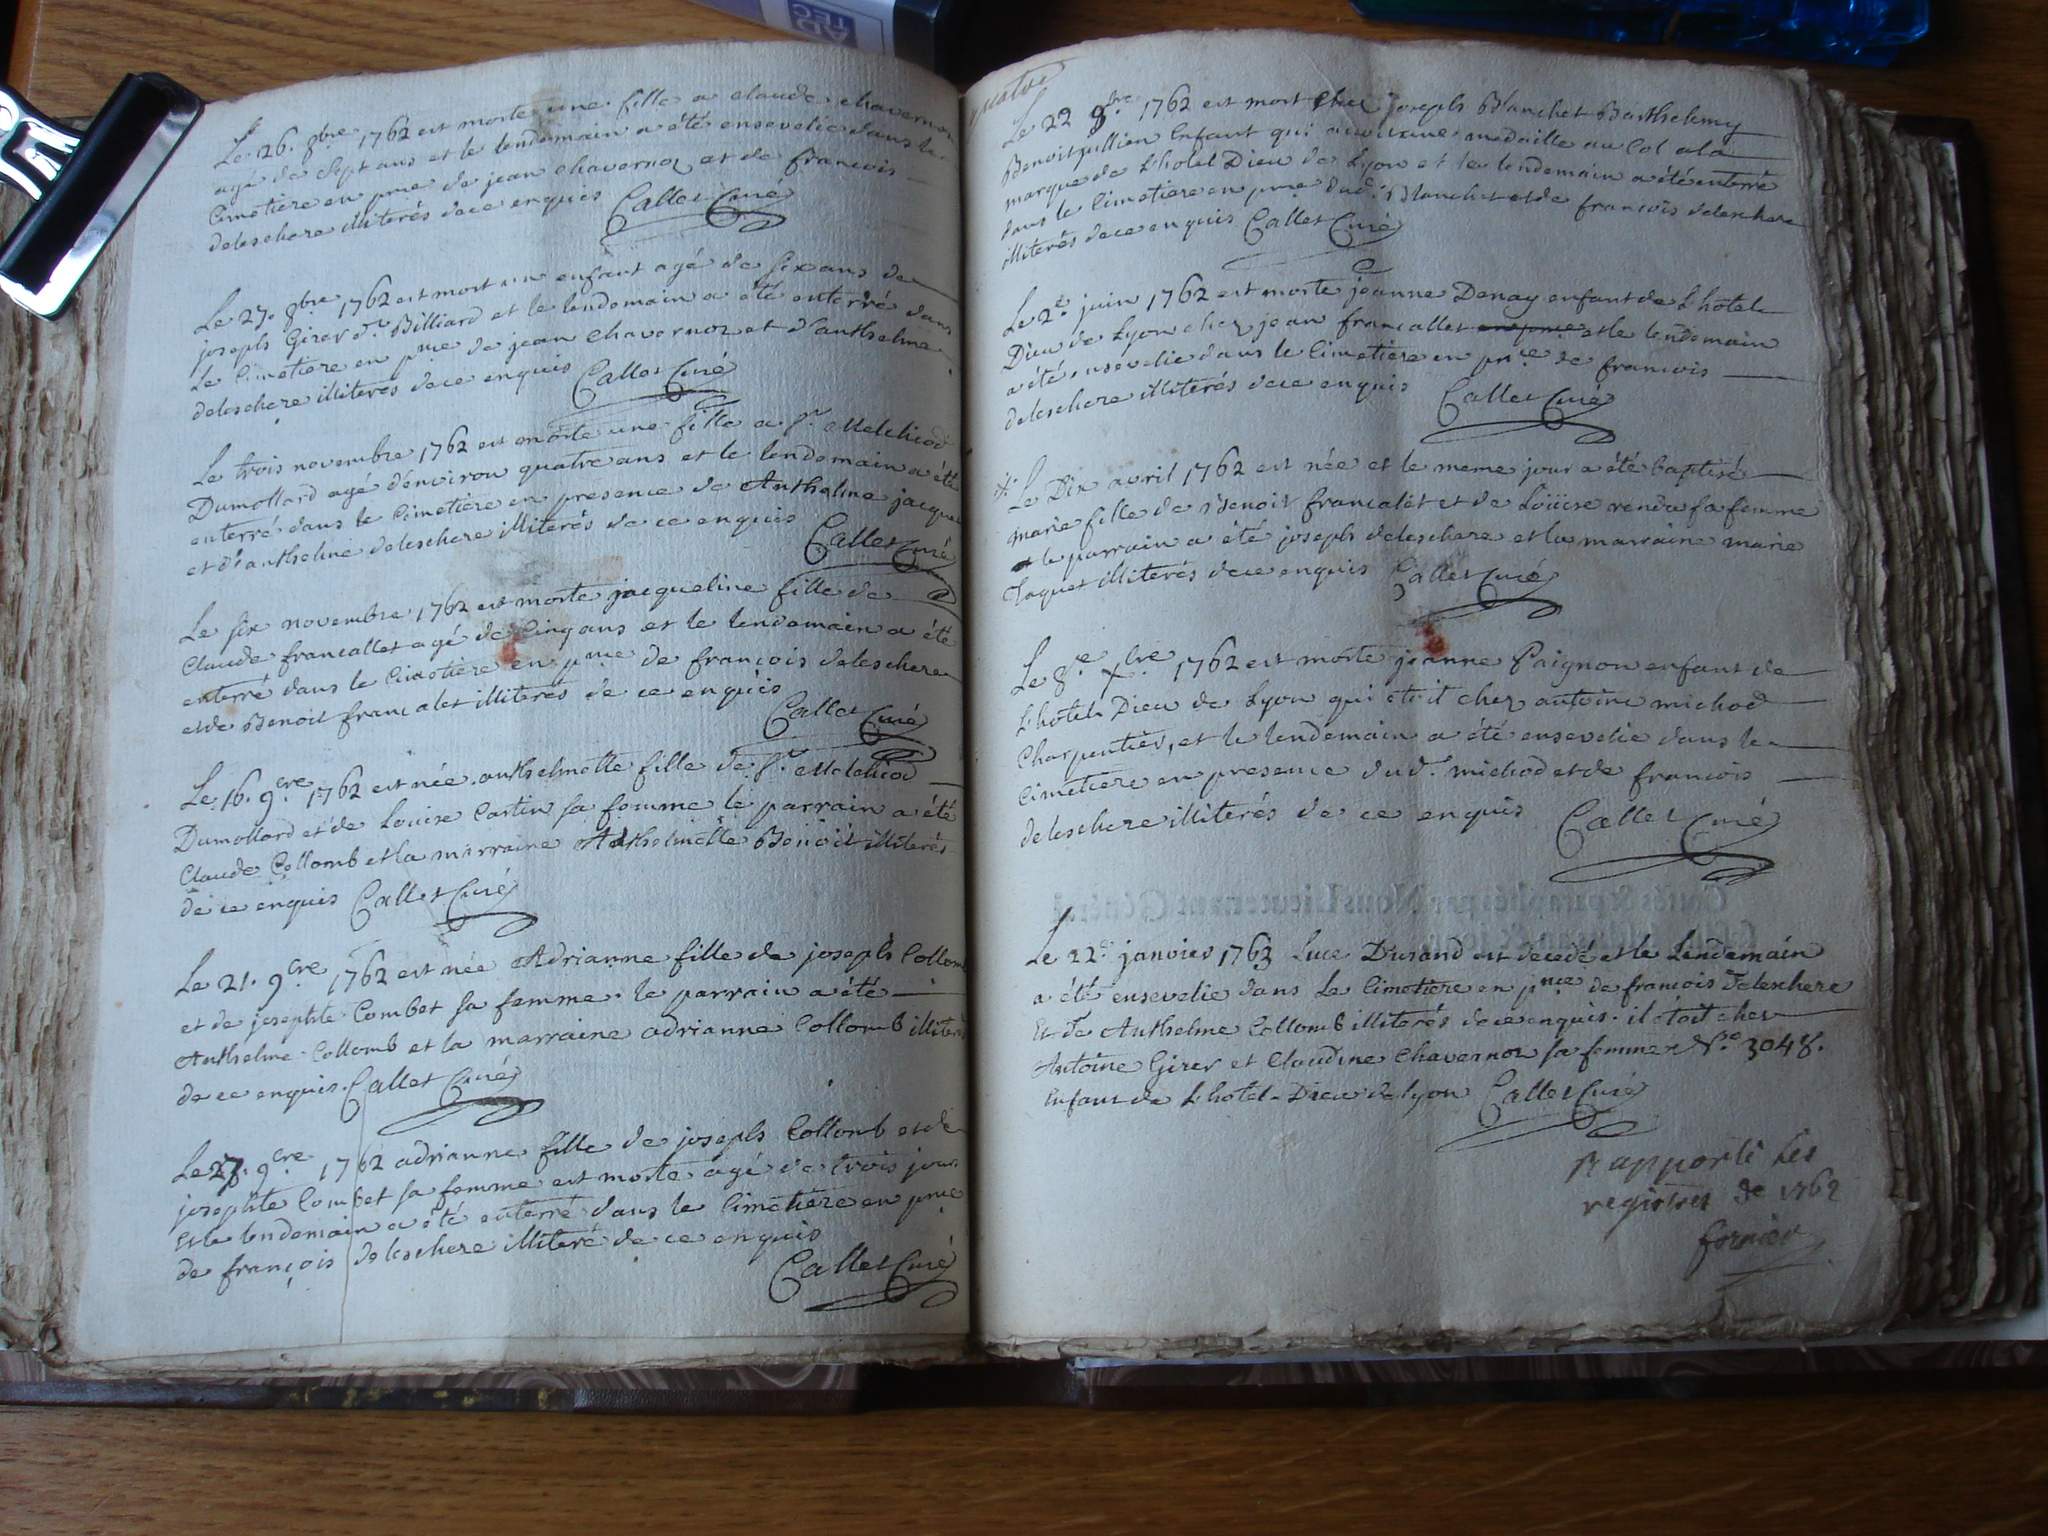 Le 26. 8bre 1762 est morte une fille a claude chavernoz
agé de sept ans et le lendemain a été ensevelie dans le
Cimetiere en pnce de jean chavernoz et de francois
deleschere illiterés de ce enquis Callet Curé
Le 27. 8bre 1762 est mort un enfant agé de six ans de
joseph Girer dt Billiard et le lendemain a été enterré dans
Le Cimetiere en pnce de jean chavernoz et d'anthelme
deleschere illiterés de ce enquis Callet Curé
Le trois novembre 1762 est morte une fille a Sr. Melchiod
Dumollard agé d'environ quatre ans et le lendemain a été
enterré dans le Cimetiére en presence de Anthelme jacquet
et d'anthelme deleschere illiterés de ce enquis Callet Curé
Le six novembre 1762 est morte jacqueline fille de
Claude francallet agé de Cinq ans et le lendemain a été
enterré dans le Cimetiére en pnce de françois deleschere
et de Benoit françalet illiterés de ce enquis
Callet Curé
Le 16. 9bre 1762 est née anthelmette fille de Sr. Melchiod
Dumollard et de Louise Cartin sa femme le parrain a été
Claude Collomb et la marraine Anthelmette Benoit illiterés
de ce enquis Callet Curé
Le 21. 9bre 1762 est née Adrianne fille de joseph Collomb
et de josephte Combet sa femme le parrain a été
Anthelme Collomb et la marraine adrianne Collomb illiterés
de ce enquis Callet Curé
Le 27. 9bre 1762 adrianne fille de joseph Collomb et de
josephte Combet sa femme est morte agé de trois jour
et le lendemain a été enterré dans le Cimetiére en pnce
de françois deleschere illiteré de ce enquis
Callet Curé
quatre
Le 22 8bre 1762 est mort chez joseph Blanchet Barthelemy
Benoit jullien Enfant qui avoit une medaille au Col a la
marque de L'hotel Dieu de Lyon et le lendemain a été enterré
dans le Cimetiere en pnce dud. Blanchet et de francois deleschere
illiterés de ce enquis Callet Curé
Le 2e. juin 1762 est morte jeanne Denay enfant de L'hotel
Dieu de Lyon chez jean francallet en pnce et le lendemain
a été ensevelie dans le Cimetiére en pnce de francois
deleschere illiterés de ce enquis Callet Curé
Le Dix avril 1762 est née et le meme jour a été baptisé
marie fille de Benoit francalet et de Loüise rendu sa femme
le parrain a été joseph deleschere et la marraine marie
Jaquet illiterés de ce enquis Callet Curé
Le 8e. Xbre 1762 est morte jeanne Paignon enfant de
L'hotel Dieu de Lyon qui etoit chez antoine michod
Charpentier, et le lendemain a été ensevelie dans le
Cimetiere en presence dud. michod et de francois
deleschere illiterés de ce enquis Callet Curé
Cottés & paraphés par Nous Lieutenant Général
Le 22e janvier 1763 Luce Durand est decedé et le Lendemain
a été ensevelie dans Le Cimetiére en pnce de francois Deleschere
Et de Anthelme Collomb illiterés de ce enquis. il étoit chez
Antoine Girer et Claudine Chavernoz sa femme N.o 3048.
Enfant de L'hotel-Dieu de Lyon Callet Curé
Rapporté Les
registres de 1762
fornier